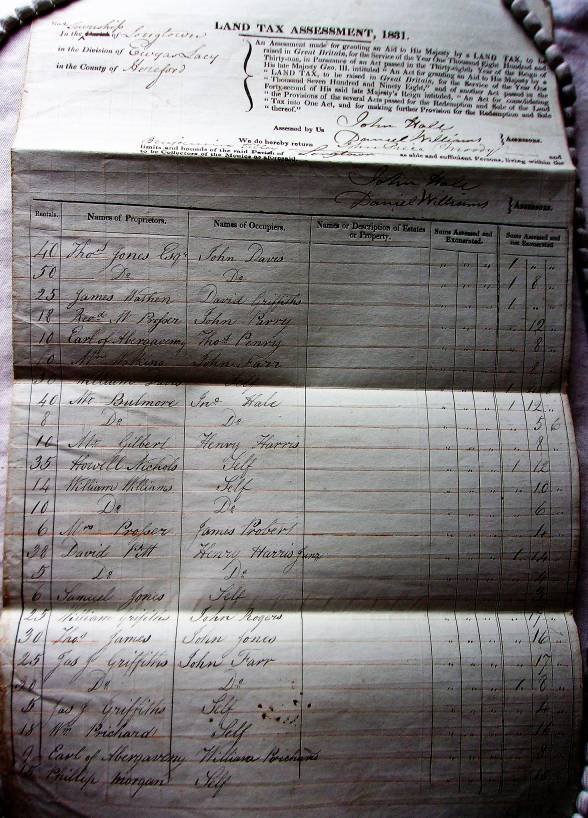 LAND TAX ASSESSMENT, 1831.
Township
In the of Longtown
in the Division of Ewyas Lacy
in the County of Hereford
An Assessment made for granting an Aid to His Majesty by a LAND TAX, to be
raised in Great Britain, for the Service of the Year One Thousand Eight Hundred and
Thirty-one, in Pursuance of an Act passed in the Thirty-eighth Year of the Reign of
His late Majesty Geo. III. intituled "An Act for granting an Aid to His Majesty by a
"LAND TAX, to be raised in Great Britain, for the Service of the Year One
"Thousand Seven Hundred and Ninety Eight," and of another Act, passed in the
Forty-second of His said late Majesty's Reign intituled, "An Act for consolidating
"the Provisions of the several Acts passed for the Redemption and Sale of the Land
"Tax into One Act, and for making further Provision for the Redemption and Sale
"thereof."
Assessed by Us John Hale
Daniel Williams Assessors.
We do hereby return and
limits and bounds of the said Parish of Longtown as able and sufficient Persons, living within the
to be Collectors of the Monies as aforesaid
John Hale
Daniel Williams Assessors.
Rentals. Names of Proprietors. Names of Occupiers. Names or Description of Estates or Property. Sums Assessed and Exonerated. Sums Assessed and not Exonerated
40 Thos. Jones Esqr John Davis 1 " "
50 Do Do 1 8 "
25 James Wathen David Griffiths 1 " "
18 Revd. W Prosser John Parry " 12 "
10 Earl of Abergaveny Thos. Penry " 8 "
John Farr " 8
William Self
40 Mr Bulmore Jno. Hale 1 12 "
8 Do Do " 5 6
10 Mr Gilbert Henry Harris " 8 "
35 Howell Nichols Self 1 12
14 William Williams Self " 10 "
10 Do Do " 6 "
6 Mrs Prosser James Probert " 4 "
38 David Pitt Henry Harris Junr 1 14
5 Do Do " 4 "
6 Samuel Jones Self " 3 "
25 William Griffiths John Rogers " 17 "
30 Thos. James John Jones " 16 "
25 Jas J Griffiths John Farr " 17
20 Do Do 1 8
5 Jas J Griffiths Self " 4 "
18 Wm Prichard Self " 16
9 Earl of Abergaveny William Prichard " 8
15 Phillip Morgan Self